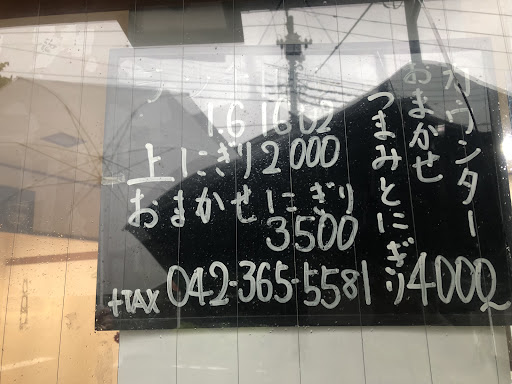 カウンター
おまかせ
つまみとにぎり 4000
上にぎり 2000
おまかせにぎり
3500
+TAX 042-365-5581